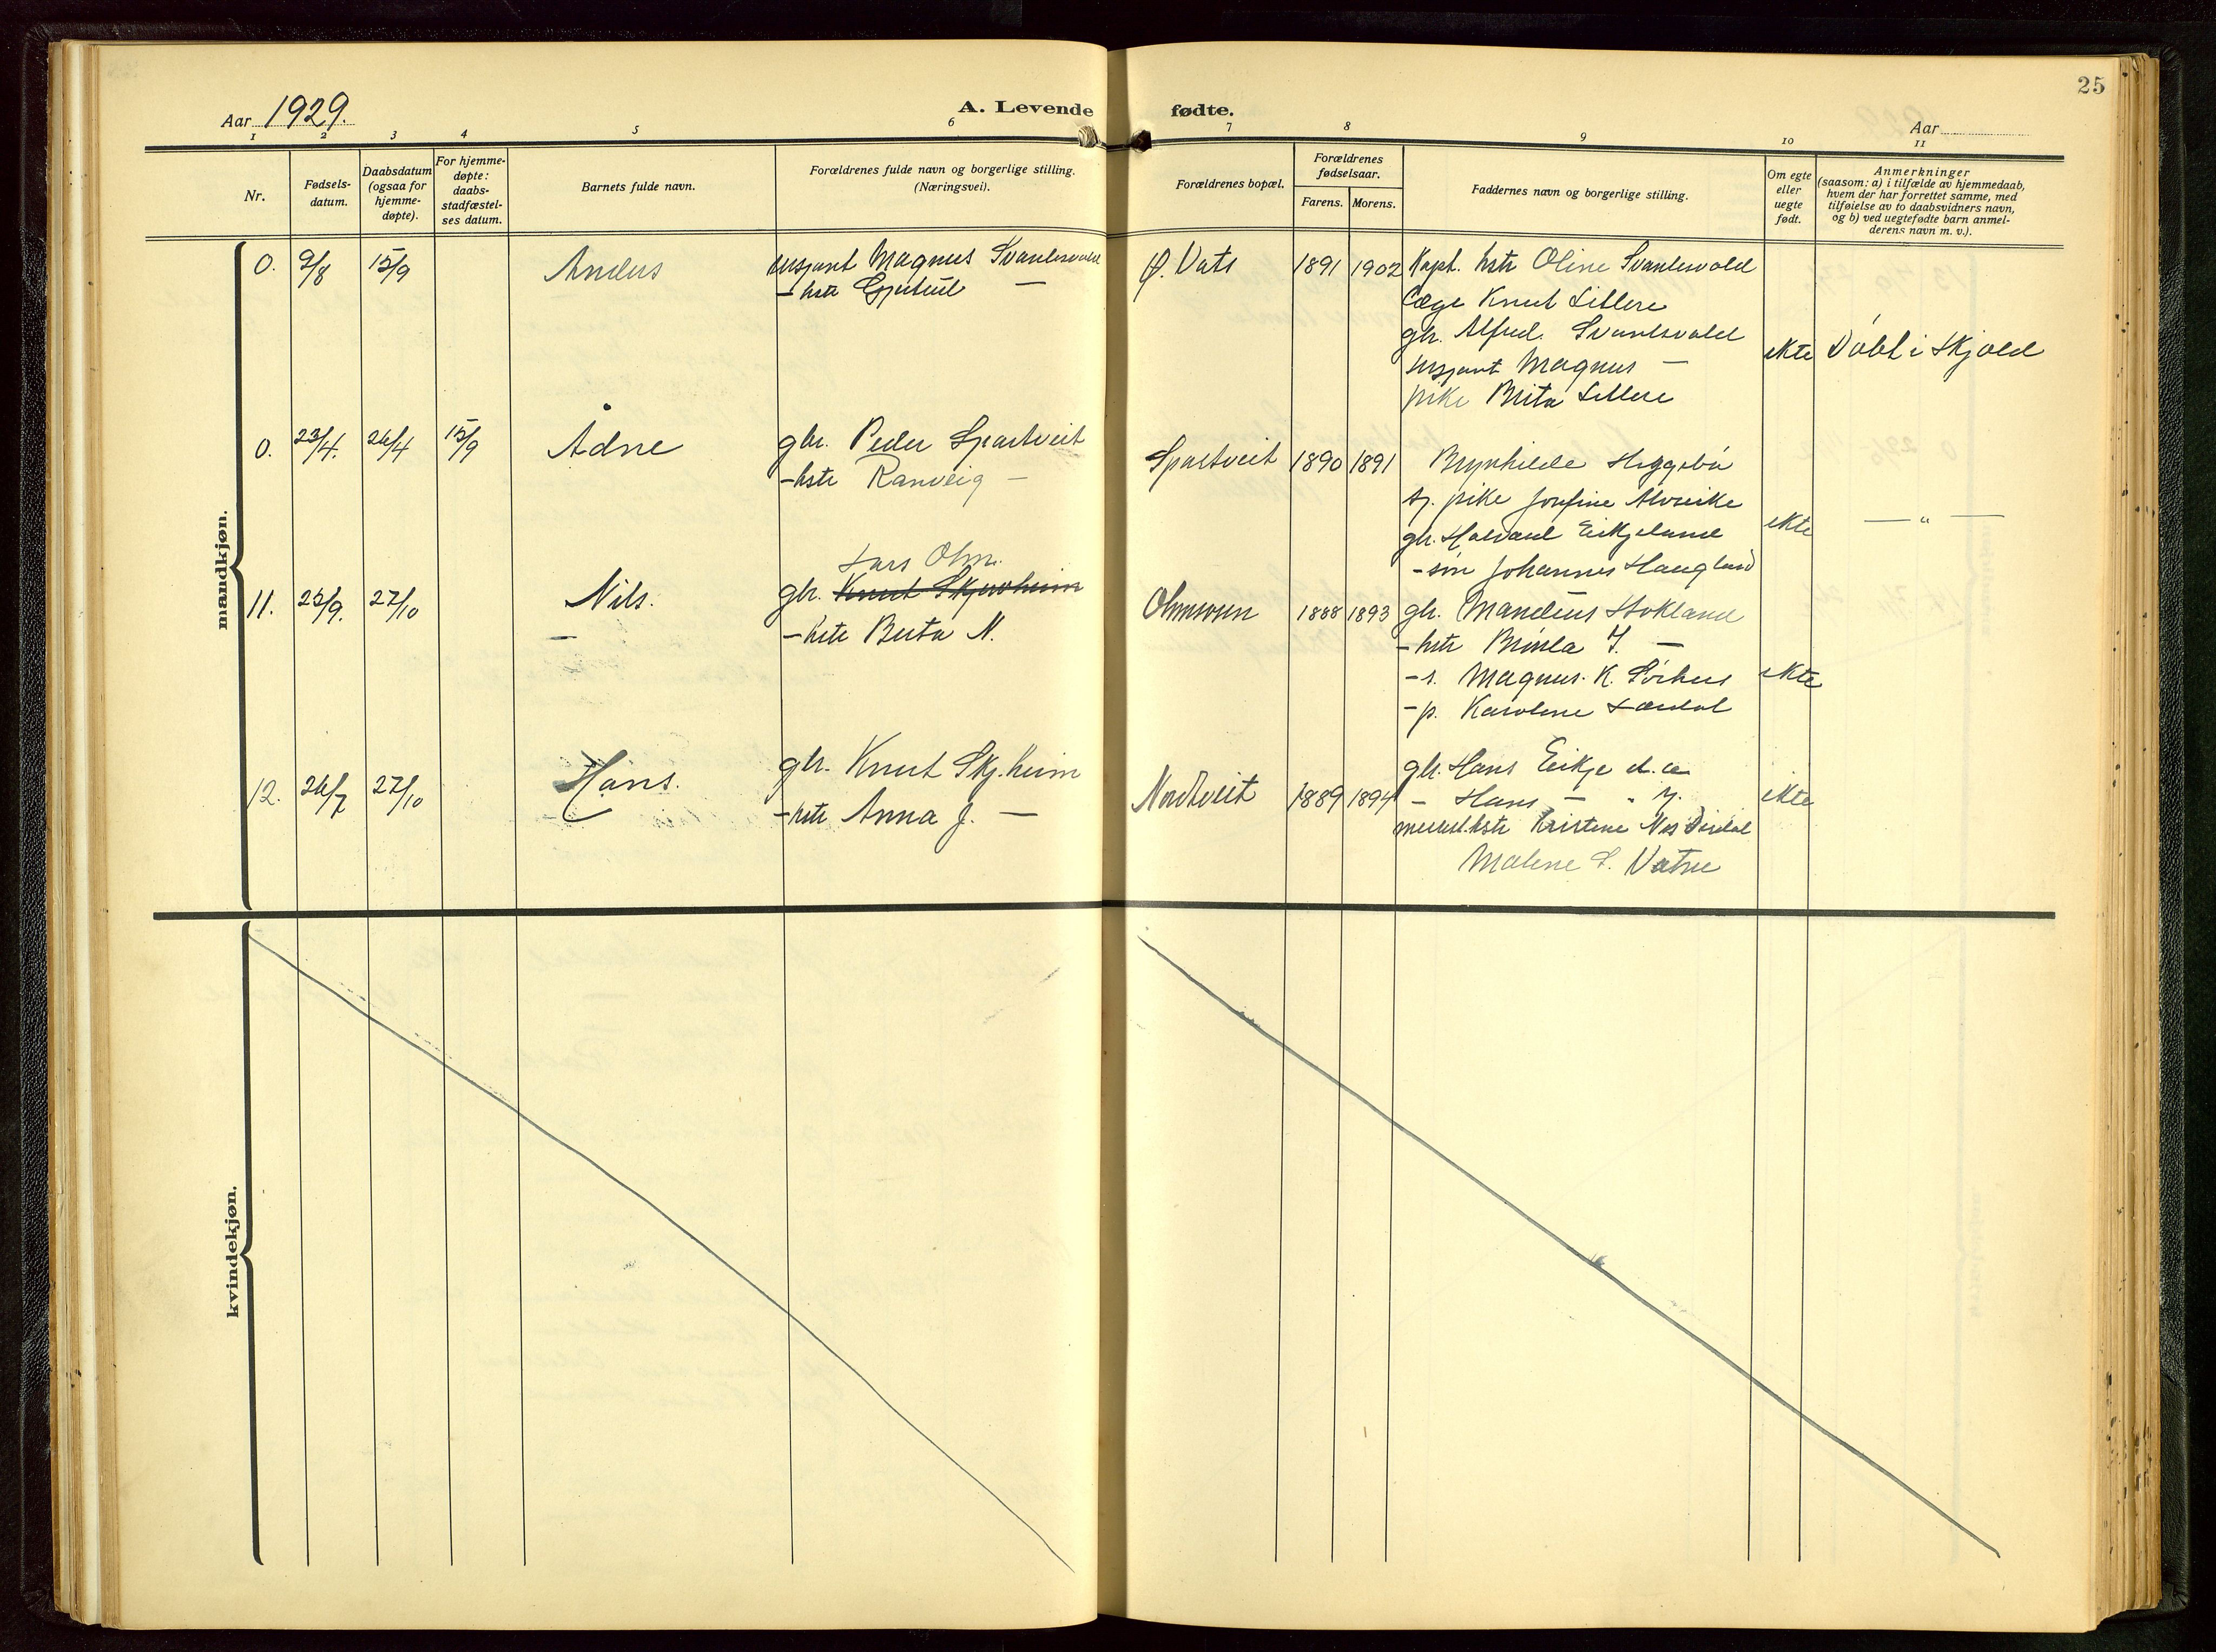 25
Aar 1929.
A. Levende fødte.
Aar
1 2 3 4 5 6 7 8 9 10 11
Nr.
Fødsels-
datum.
Daabsdatum
(ogsaa for
hjemme-
døpte).
For hjemme-
døpte:
daabs-
stadfæstel-
ses datum.
Barnets fulde navn.
Forældrenes fulde navn og borgerlige stilling.
(Næringsvei).
Forældrenes bopæl.
Forældrenes
fødselsaar.
Farens. Morens.
Faddernes navn og borgerlige stilling.
Om egte
eller
uegte
født.
Anmerkninger
(saasom: a) i tilfælde av hjemmedaab,
hvem der har forrettet samme, med
tilføielse av to daabsvidners navn,
og b) ved uegtefødte barn anmel-
derens navn m. v.).
mandkjøn.
0. 9/8 15/9 Anders
sersjant Magnus Svantesvold
- hstr
Ø. Vats 1891 1902
Kapt. hstr Oline Svantesvold
Knut Lillere
gbr. Alfred Svantesvold
sersjant Magnus —
pike Brita Lillere
ekte Døbt i Skjold
0. 23/4. 26/4 15/9 Ådne
gbr. Peder Spartveit
- hstr Ranveig —
Spartveit 1890 1891
Brynhilde
tj. pike
gbr. Halvard Eikjeland
- søn Johannes Haugland
ekte — " —
11. 25/9. 27/10 Nils.
Lars Olm.
gbr. Knut Skjerheim
- hstr Berta N.
1888 1893
gbr. Mandius Stokland
- hstr
- s. Magnus K. Sørhus
- p. Karoline
ekte
12. 26/7 27/10 Hans.
gbr. Knut Skj.heim
- hstr Anna J. —
Nordtveit 1889 1894
gbr. Hans Eikje d. e.
- Hans — " y.
hstr Kristine
Malene S. Vatne
ekte
kvindekjøn.